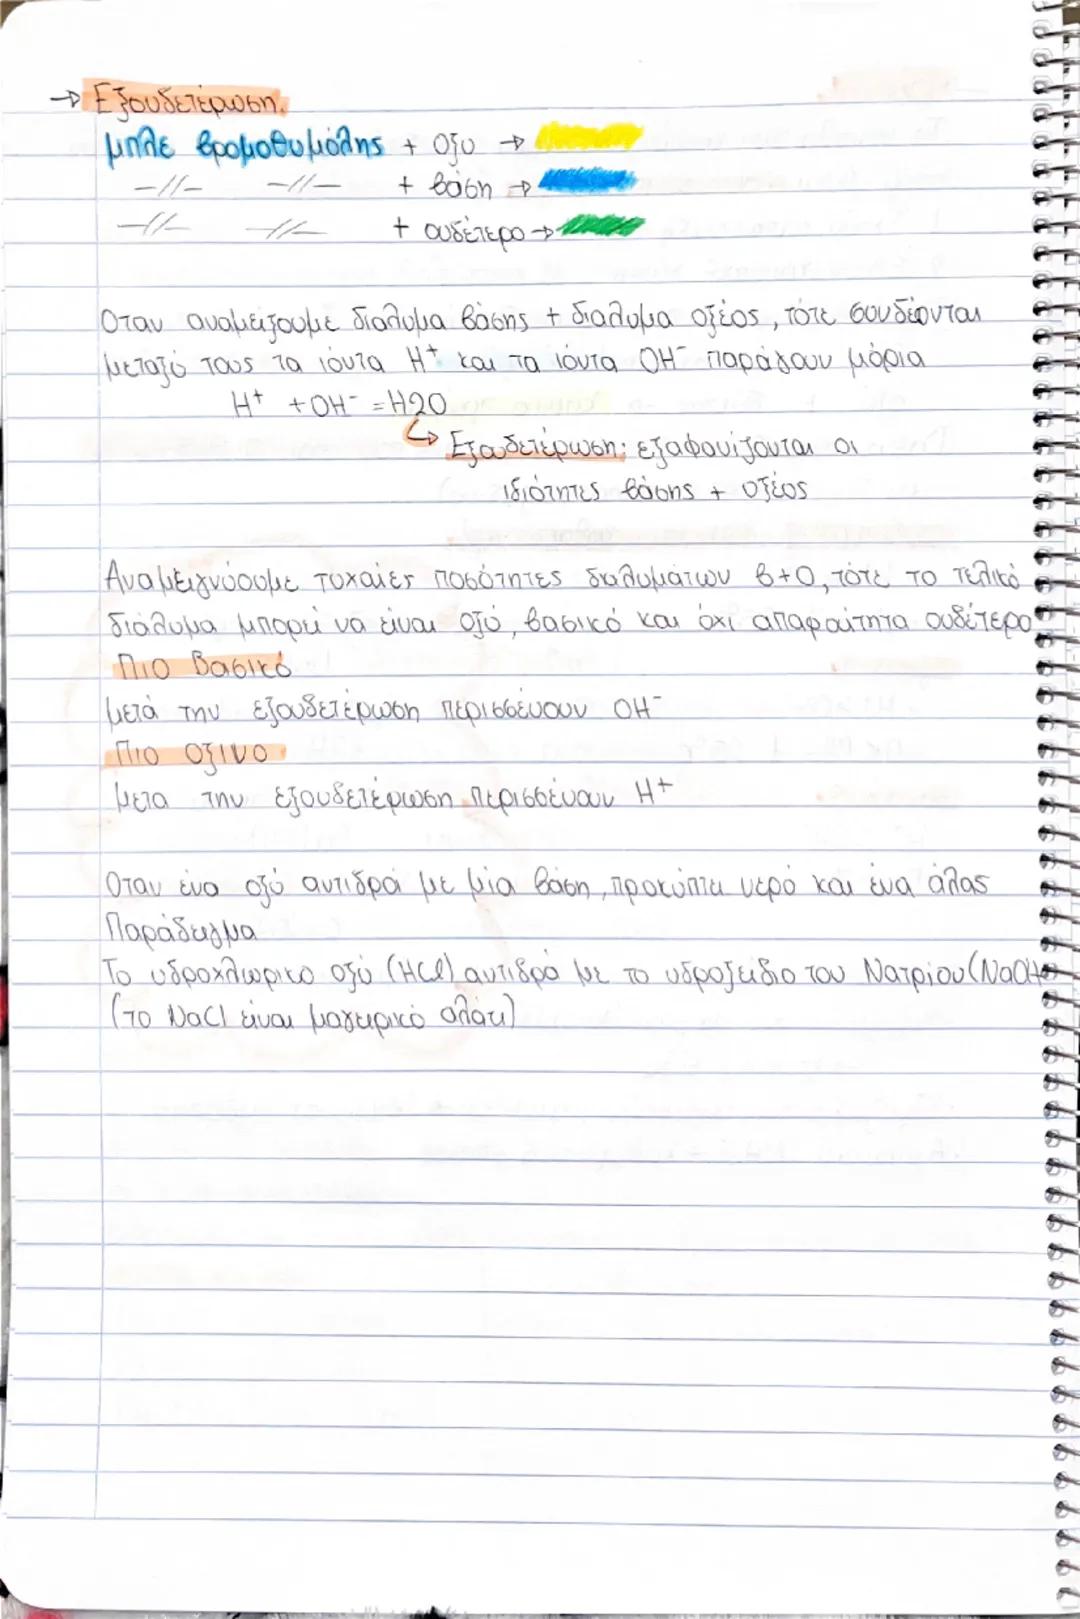 → Εξουδετέρωση.
μπλε βρομοθυμόλης + οξυ →
-//- -//- + βάση →
-//- -//- + ουδέτερο →
Οταν αναμειζουμε διαλυμα βάσης + διαλυμα οξέος, τότε συνδέονται
μεταξύ τους τα ιόντα H⁺ και τα ιόντα OH⁻ παράγουν μόρια
H⁺ + OH⁻ = H2O
↳ Εξουδετέρωση: εξαφανιζονται οι
ιδιότητες βάσης + οξέος
Αναμειγνύουμε τυχαίες ποσότητες διαλυμάτων β+Ο, τότε το τελικό
διάλυμα μπορεί να είναι οξύ, βασικό και όχι απαραίτητα ουδέτερο
Πιο Βασικό
μετά την εξουδετέρωση περισσεύουν OH⁻
Πιο οξινο
μετα την εξουδετέρωση περισσεύουν H⁺
Οταν ένα οξύ αντιδρά με μία βάση, προκύπτει νερό και ένα άλας
Παράδειγμα
Το υδροχλωρικο οξύ (HCl) αντιδρά με το υδροξείδιο του Νατρίου (NaOH
(το NaCl είναι μαγειρικό αλάτι)